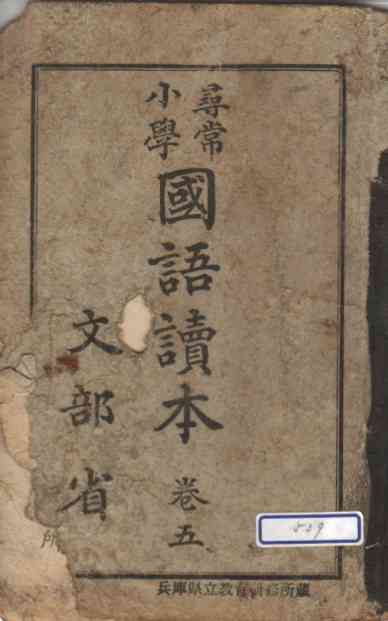 尋常
小學
國語讀本
卷五
文部省
兵庫県立教育研修所蔵
559
所